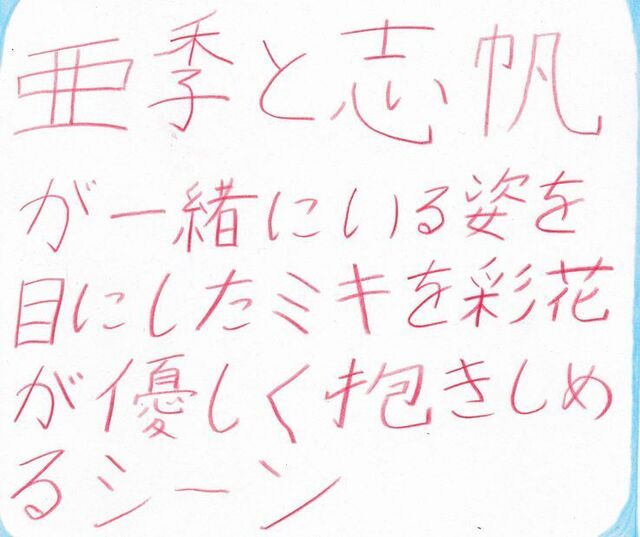 亜季と志帆
が一緒にいる姿を
目にしたミキを彩花
が優しく抱きしめ
るシーン